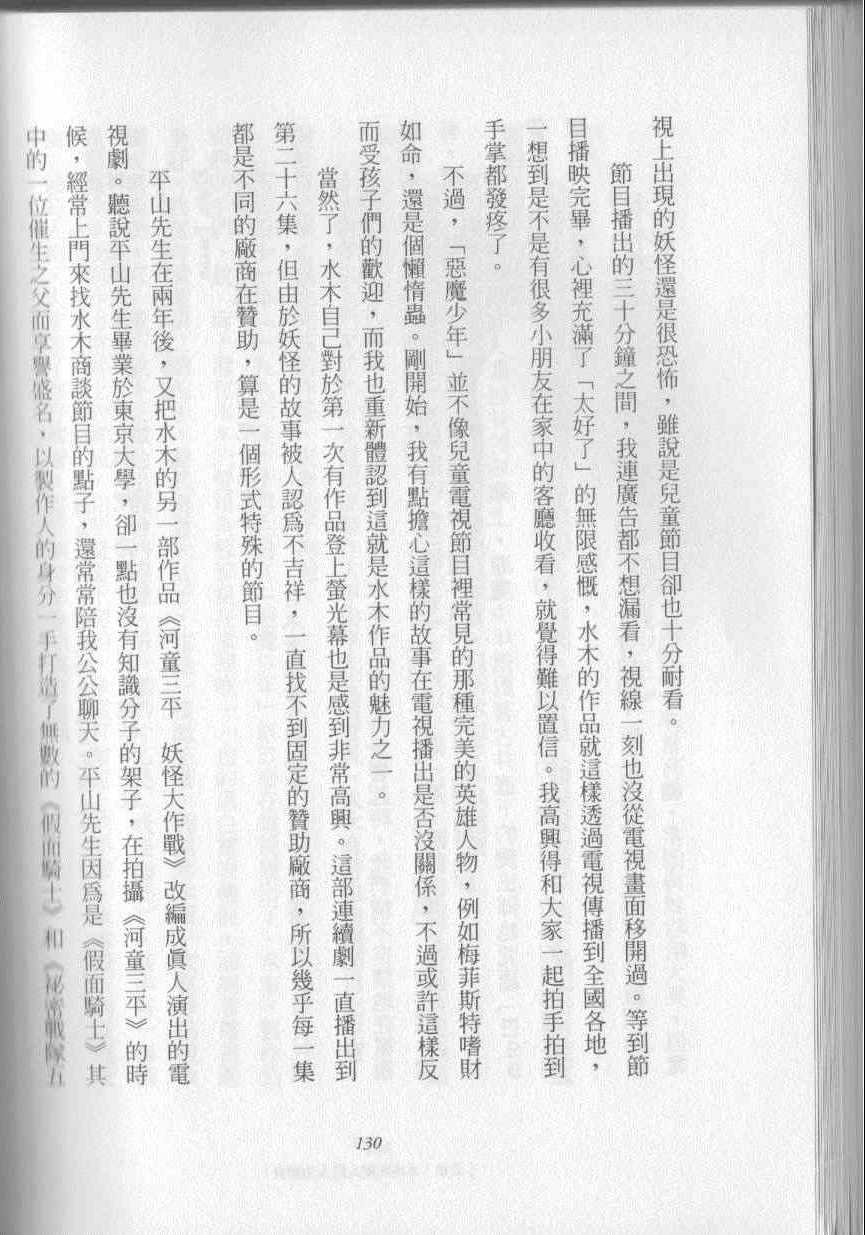 視上出現的妖怪還是很恐怖，雖說是兒童節目卻也十分耐看。
節目播出的三十分鐘之間，我連廣告都不想漏看，視線一刻也沒從電視畫面移開過。等到節
目播映完畢，心裡充滿了「太好了」的無限感慨，水木的作品就這樣透過電視傳播到全國各地，
一想到是不是有很多小朋友在家中的客廳收看，就覺得難以置信。我高興得和大家一起拍手拍到
手掌都發疼了。
不過，「惡魔少年」並不像兒童電視節目裡常見的那種完美的英雄人物，例如梅菲斯特嗜財
如命，還是個懶惰蟲。剛開始，我有點擔心這樣的故事在電視播出是否沒關係，不過或許這樣反
而受孩子們的歡迎，而我也重新體認到這就是水木作品的魅力之一。
當然了，水木自己對於第一次有作品登上螢光幕也是感到非常高興。這部連續劇一直播出到
第二十六集，但由於妖怪的故事被人認爲不吉祥，一直找不到固定的贊助廠商，所以幾乎每一集
都是不同的廠商在贊助，算是一個形式特殊的節目。
平山先生在兩年後，又把水木的另一部作品《河童三平　妖怪大作戰》改編成眞人演出的電
視劇。聽說平山先生畢業於東京大學，卻一點也沒有知識分子的架子，在拍攝《河童三平》的時
候，經常上門來找水木商談節目的點子，還常常陪我公公聊天。平山先生因爲是《假面騎士》其
中的一位催生之父而享譽盛名，以製作人的身分一手打造了無數的《假面騎士》和《祕密戰隊五
130